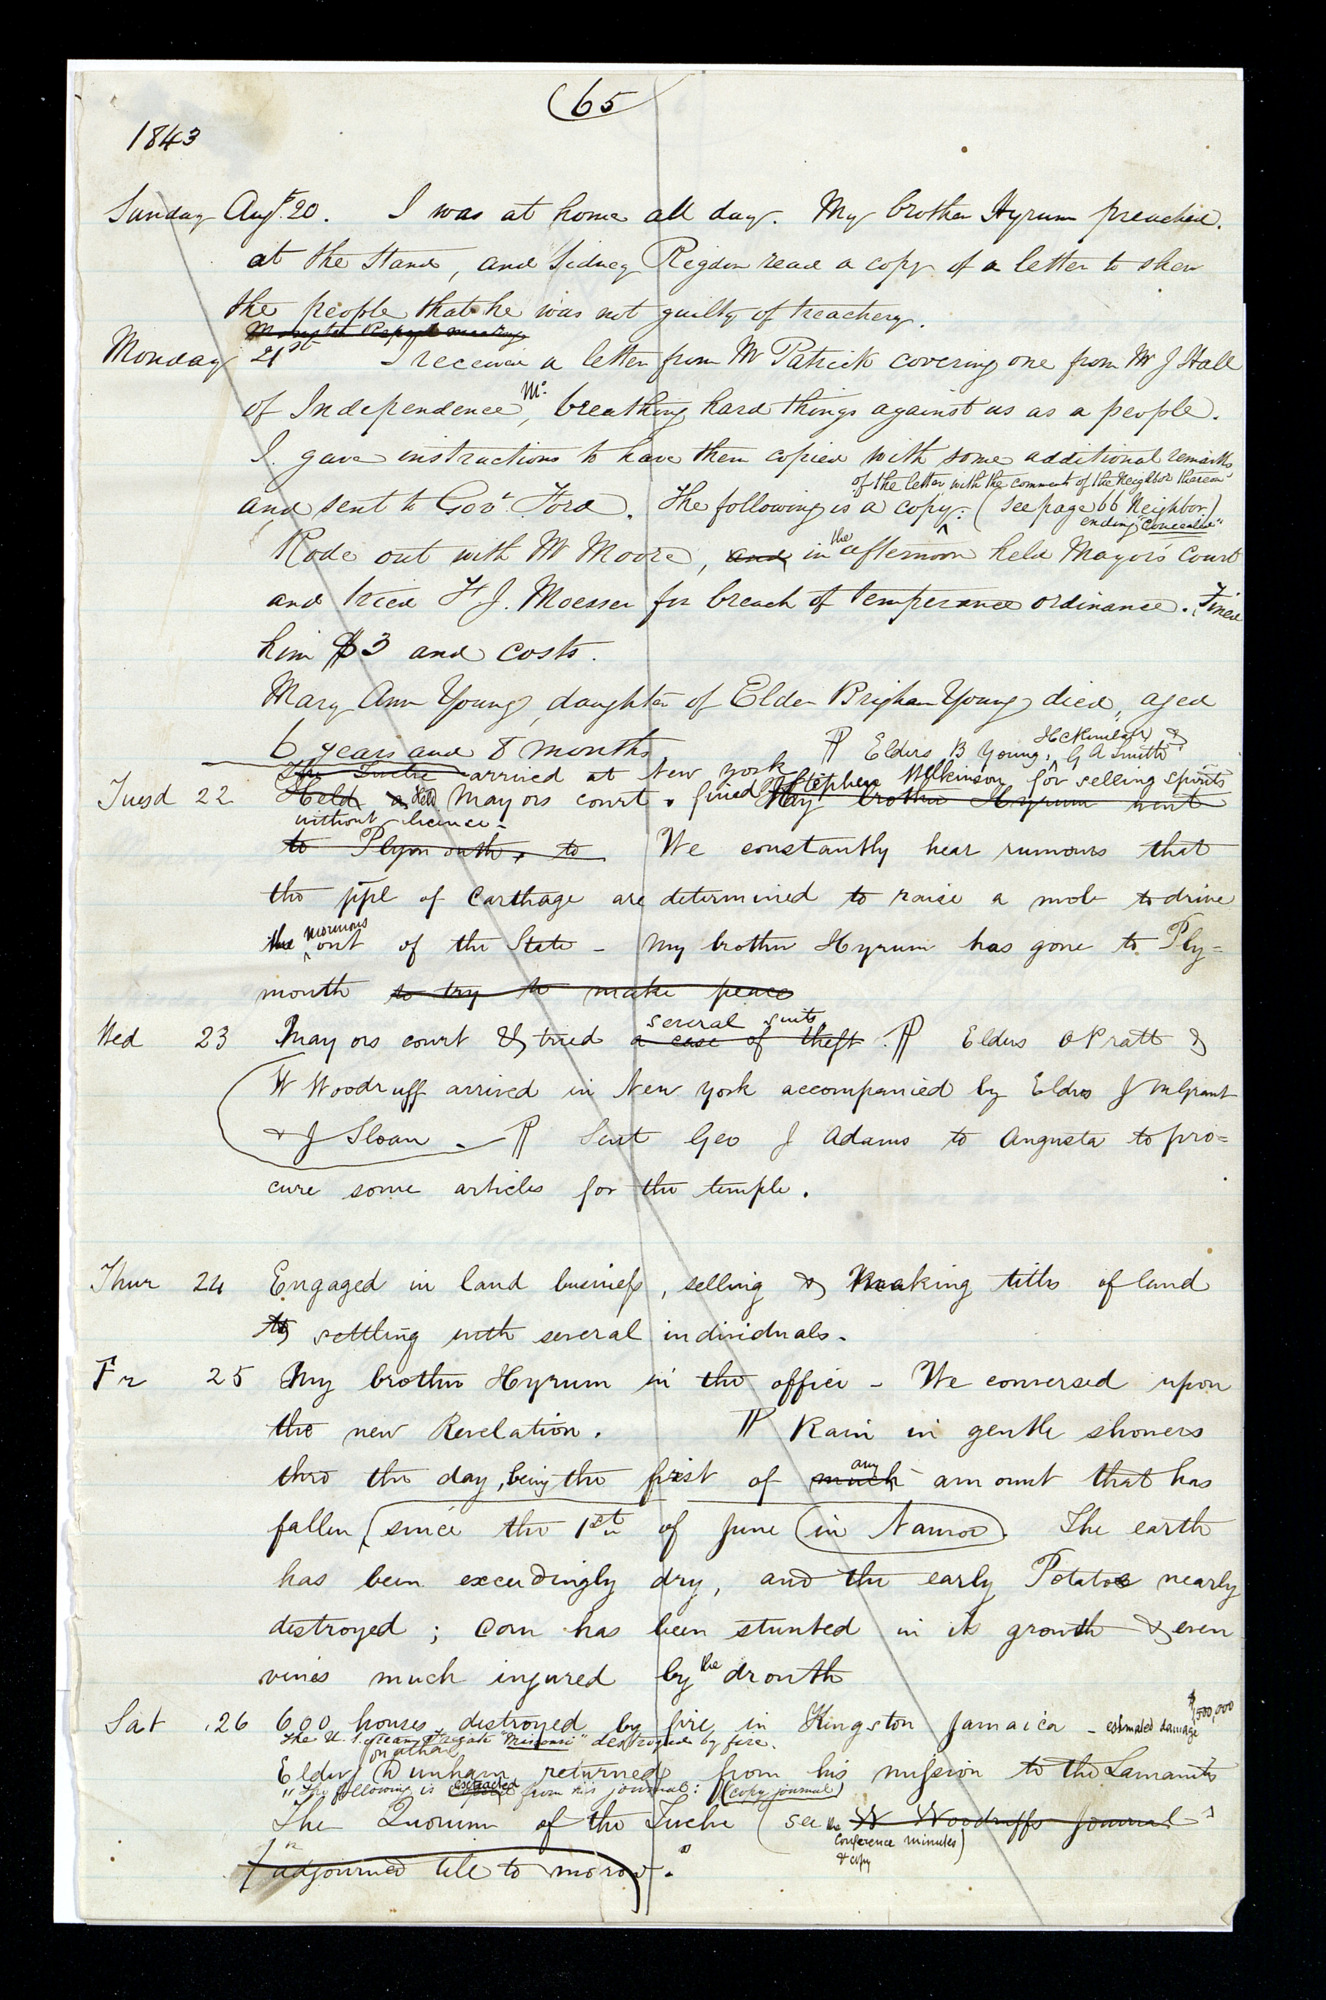 (65
1843
Sunday Augt. 20. I was at home all day. My brother Hyrum preached.
at the Stand, and Sidney Rigdon read a copy of a letter to shew
the people that he was not guilty of treachery.
Monday 21st I received a letter from Mr Patrick covering one from Mr J Hall
of Independence, Mo. breathing hard things against us as a people.
I gave instructions to have them copied with some additional remarks,
of the letter with the comments of the Neighbor thereon
and sent to Govr Ford. The following is a copy: (see page 66 Neighbor)
ending "concealed"
Rode out with Mr Moore, and in the afternoon held Mayor's Court
and tried F J. Moesser for breach of temperance ordinance. Fined
him $3 and costs.
Mary Ann Young, daughter of Elder Brigham Young died, aged
6 years and 8 months
¶ Elders B Young, H C Kimball & G A Smith
The Twelve arrived at New York
Tuesd 22 Held a Mayors court. fined Stephen Wilkinson for selling spirits
My brother Hyrum went
without licence -
to Plymouth, to We constantly hear rumours that
the ppl of Carthage are determined to raise a mob to drive
the mormons out of the State - My brother Hyrum has gone to Ply=
mouth to try to make peace
several suits
Wed 23 Mayors court & tried a case of theft. ¶ Elders O Pratt &
W Woodruff arrived in New York accompanied by Elders J M Grant
& J Sloan. - ¶ Sent Geo J Adams to Augusta to pro=
cure some articles for the temple.
Thur 24 Engaged in land business, selling & Making titles of land
& settling with several individuals.
Fr 25 My brother Hyrum in the office - We conversed upon
the new Revelation. ¶ Rain in gentle showers
thro the day, being the first of much any amount that has
fallen (since the 1st of June (in Nauvoo). The earth
has been exceedingly dry, and the early Potatoes nearly
destroyed; Corn has been stunted in its growth & even
vines much injured by the drouth
Sat 26 600 houses destroyed by fire in Kingston Jamaica - estimated damage $1,500,000
The U. S. steam Frigate "Missouri" destroyed by fire.
Elder Jonathan Dunham returned from his mission to the Lamanites
"The following is extracted from his journal: (copy journal)
The Quorum of the Twelve (see the W Woodruffs Journal
Conference minutes)
& copy
adjourned till to morow.